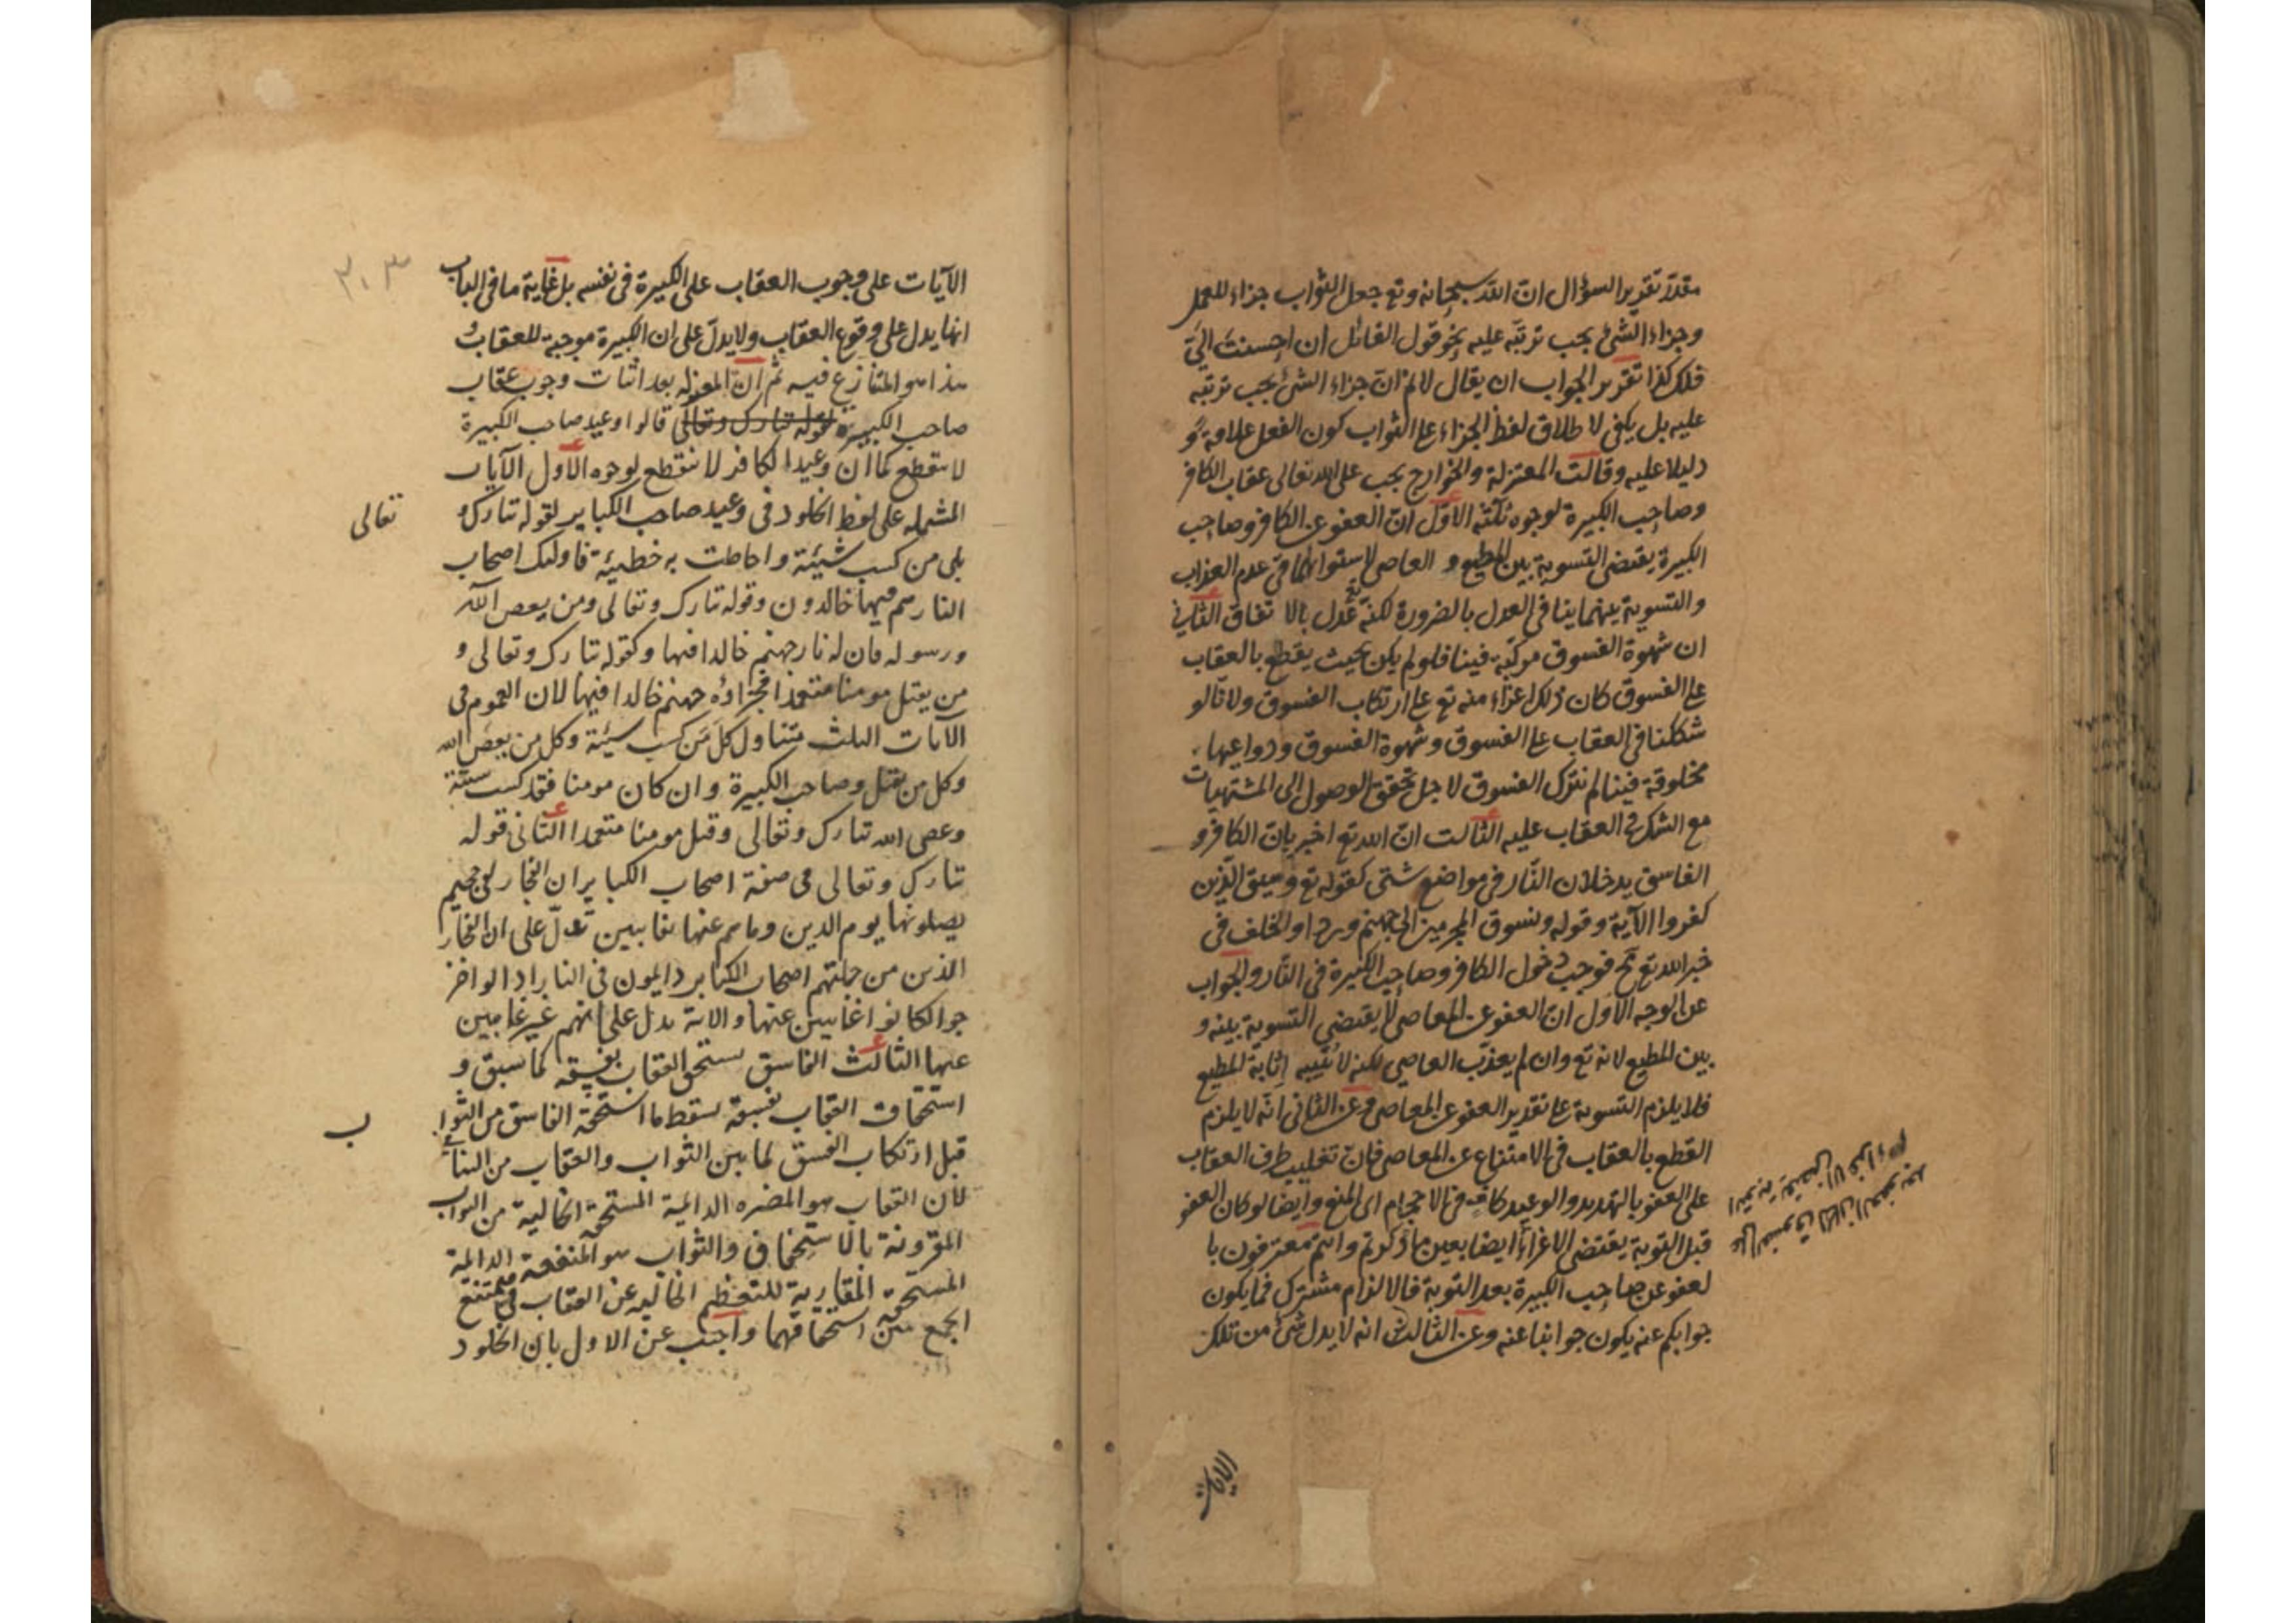 مقدّر تقرير السؤال انّ الله سبحانه وتع جعل الثواب جزاء للعمل
وجزاء الشئ يجب ترتبه عليه نحو قول القائل ان احسنت اليّ
فلك كذا تقرير الجواب ان يقال لا نم انّ جزاء الشئ يجب ترتبه
عليه بل يكفي لاطلاق لفظ الجزاء على الثواب كون الفعل علامة و
دليلا عليه وقالت المعتزلة والخوارج يجب على الله تعالى عقاب الكافر
وصاحب الكبيرة لوجوه ثلثة الاوّل انّ العفو عن الكافر وصاحب
الكبيرة يقتضي التسوية بين المطيع و العاصي لاستوائهما في عدم العذاب
والتسوية بينهما ينافي العدل بالضرورة لكنه عدل بالاتفاق الثاني
ان شهوة الفسوق مركبة فينا فلو لم يكن بحيث يقطع بالعقاب
على الفسوق كان ذلك اغراء منه تع على ارتكاب الفسوق ولانا لو
شككنا في العقاب على الفسوق وشهوة الفسوق ودواعيها
مخلوقة فينا لم نترك الفسوق لاجل تحقق الوصول الى المشتهيات
مع الشك في العقاب عليه الثالث انّ الله تع اخبر بانّ الكافر و
الفاسق يدخلان النّار في مواضع شتى كقوله تع وسيق الّذين
كفروا الآية وقوله ونسوق المجرمين الى جهنم وردا والخلف في
خبر الله تع مح فوجب دخول الكافر وصاحب الكبيرة في النّار والجواب
عن الوجه الاوّل انّ العفو عن المعاصي لا يقتضي التسوية بينه و
بين المطيع لانه تع وان لم يعذّب العاصي لكنه لا يثيبه اثابة المطيع
فلا يلزم التسوية على تقدير العفو عن المعاصي وعن الثاني انّه لا يلزم
القطع بالعقاب في الامتناع عن المعاصي فانّ تغليب طرف العقاب
على العفو بالتهديد والوعيد كافٍ في الاحجام اى المنع وايضا لو كان العفو
قبل التوبة يقتضي الاغراء ايضا بعين ما ذكرتم وانتم معترفون با
لعفو عن صاحب الكبيرة بعد التوبة فالالزام مشترك فما يكون
جوابكم عنه يكون جوابنا عنه وعن الثالث انه لا يدل شئ من تلك
الايات
٣٠٣
الآيات على وجوب العقاب على الكبيرة في نفسه بل غاية ما في الباب
انها يدل على وقوع العقاب ولا يدلّ على ان الكبيرة موجبة للعقاب و
هذا هو المتنازع فيه ثم انّ المعتزله بعد اثبات وجوب عقاب
صاحب الكبيرة لقوله تبارك وتعالى قالوا وعيد صاحب الكبيرة
لا ينقطع كما ان وعيد الكافر لا ينقطع لوجوه الاول الآيات
المشتمله على لفظ الخلود في وعيد صاحب الكباير لقوله تبارك و
تعالى
بلى من كسب سيئة واحاطت به خطيئة فاولئك اصحاب
النار هم فيها خالدون وقوله تبارك وتعالى ومن يعص الله
ورسوله فان له نار جهنم خالدا فيها وكقوله تبارك وتعالى و
من يقتل مومنا متعمدا فجزاؤه جهنم خالدا فيها لان العموم في
الآيات الثلث متناول كل من كسب سيئة وكل من يعص الله
وكل من يقتل وصاحب الكبيرة وان كان مومنا فقد كسب سيئة
وعصى الله تبارك وتعالى وقتل مومنا متعمدا الثاني قوله
تبارك وتعالى في صفة اصحاب الكباير ان الفجار لفي جحيم
يصلونها يوم الدين وما هم عنها بغايبين تدلّ على ان الفجار
الذين من جملتهم اصحاب الكباير دايمون في النار اذ لو اخر
جوا لكانوا غايبين عنها والآية يدل على انهم غير غايبين
عنها الثالث الفاسق يستحق العقاب بفسقه كما سبق و
استحقاق العقاب بفسقه يسقط ما استحقه الفاسق من الثوا
ب
قبل ارتكاب الفسق لما بين الثواب والعقاب من التنافي
لان العقاب هو المضره الدائمية المستحقه الخالية من الثواب
المقرونة بالاستخفاف والثواب هو المنفعة الدائمة
المستحقه المقارنة للتعظيم الخاليه عن العقاب فيمتنع
الجمع بين استحقاقهما واجيب عن الاول بان الخلود